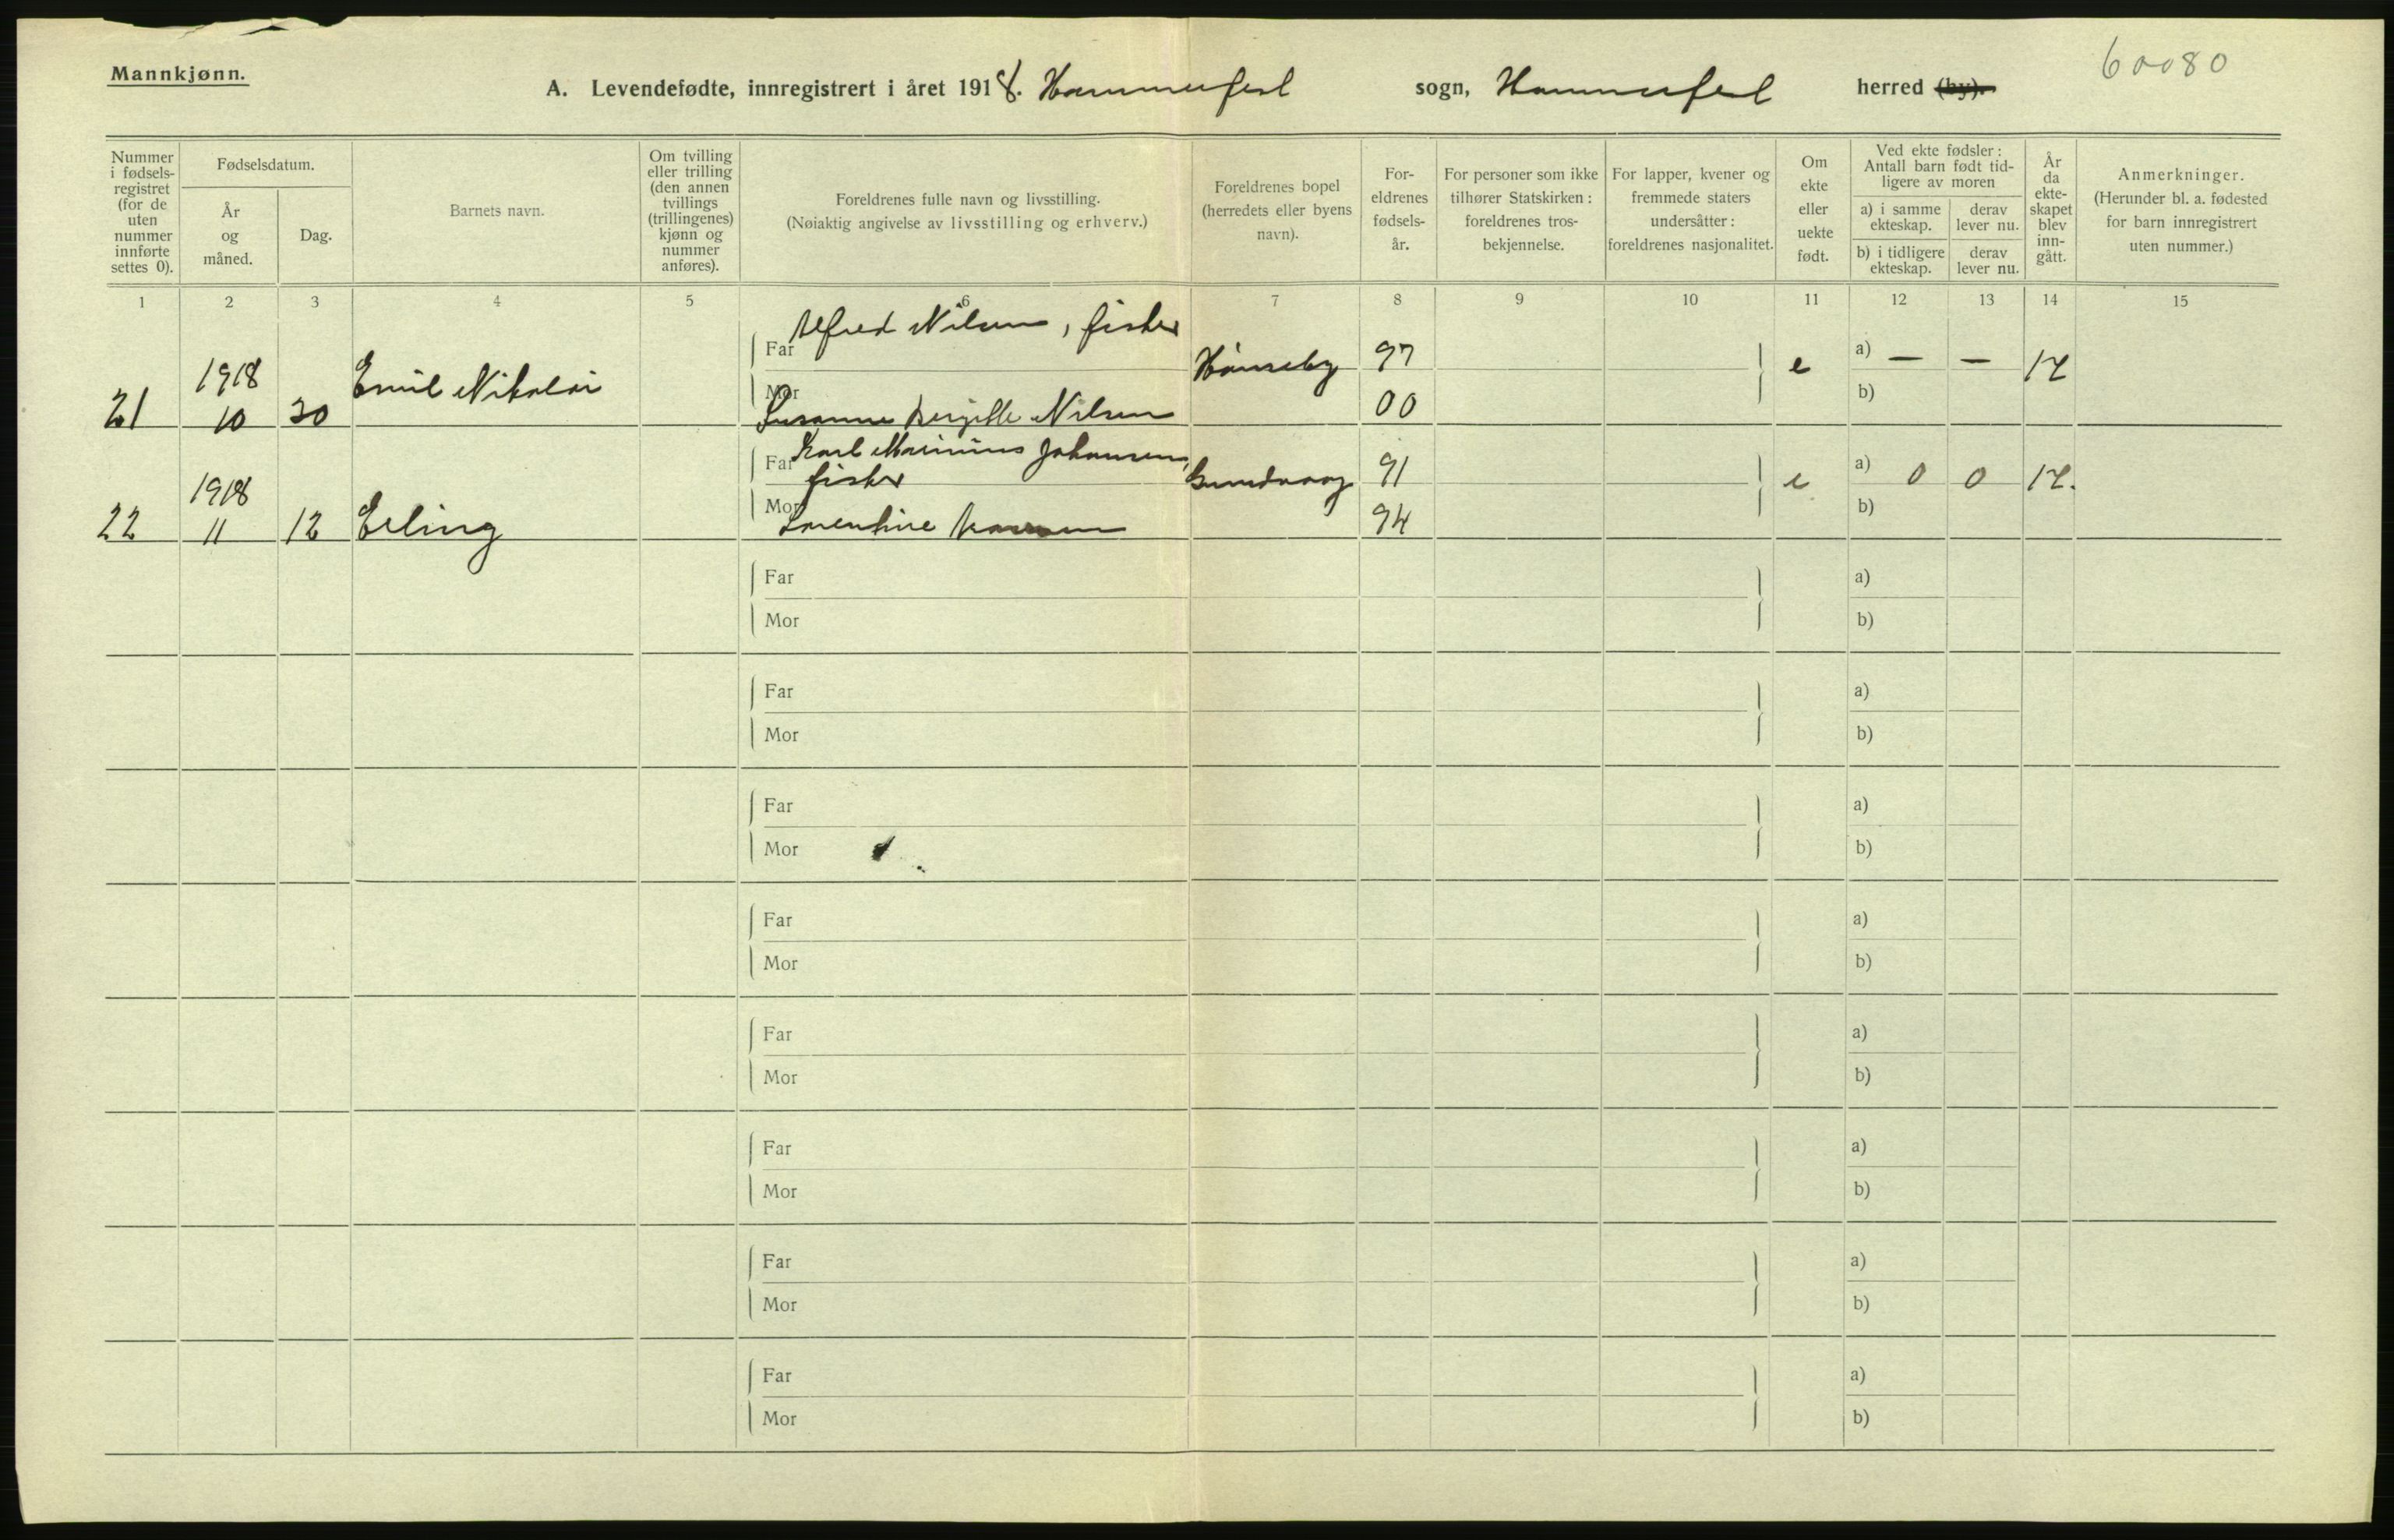 Mannkjønn.
A. Levendefødte, innregistrert i året 1918. Hammerfest sogn, Hammerfest herred (by).
60080
Nummer i fødsels-registret (for de uten nummer innførte settes 0).
Fødselsdatum.
År og måned.
Dag.
Barnets navn.
Om tvilling eller trilling (den annen tvillings (trillingenes) kjønn og nummer anføres).
Foreldrenes fulle navn og livsstilling.
(Nøiaktig angivelse av livsstilling og erhverv.)
Foreldrenes bopel (herredets eller byens navn).
For-eldrenes fødsels-år.
For personer som ikke tilhører Statskirken: foreldrenes tros-bekjennelse.
For lapper, kvener og fremmede staters undersåtter: foreldrenes nasjonalitet.
Om ekte eller uekte født.
Ved ekte fødsler: Antall barn født tid-ligere av moren
a) i samme ekteskap.
derav lever nu.
b) i tidligere ekteskap.
derav lever nu.
År da ekte-skapet blev inn-gått.
Anmerkninger.
(Herunder bl. a. fødested for barn innregistrert uten nummer.)
1 2 3 4 5 6 7 8 9 10 11 12 13 14 15
Alfred Nilsen, fisker
Far
Hønseby 97 e a) — — 17
1918
Emil Nikolai
Mor
b)
21 10 30 Susanne Bergitte Nilsen 00
Karl Marinius Johansen,
Far fisker 91 e a) 0 0 17.
1918
Mor b)
22 11 12 Erling Lorentine 94
Far a)
Mor b)
Far a)
Mor b)
Far a)
Mor b)
Far a)
Mor b)
Far a)
Mor b)
Far a)
Mor b)
Far a)
Mor b)
Far a)
Mor b)